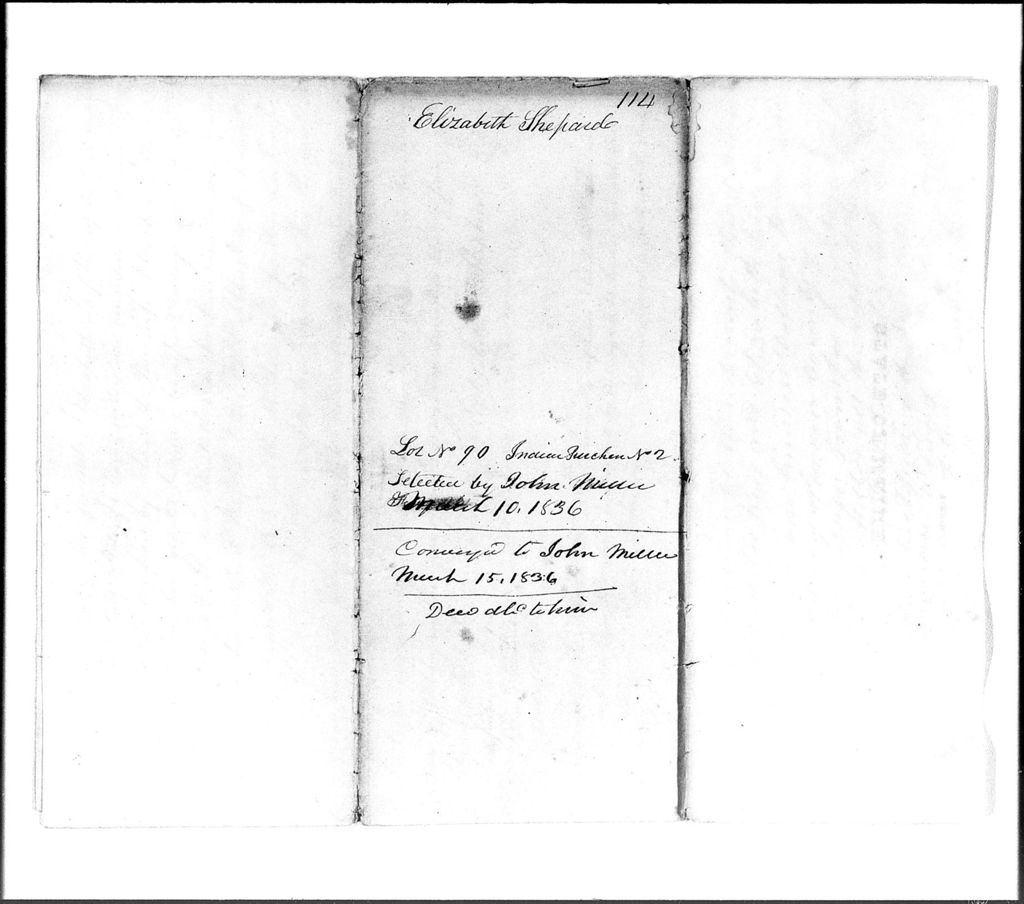 114
Elizabeth Shepard
Lot No 90 Indian Purchase No 2.
Selected by John Miller
March 10, 1836
Conveyed to John Miller
March 15, 1836
Deed dld to him